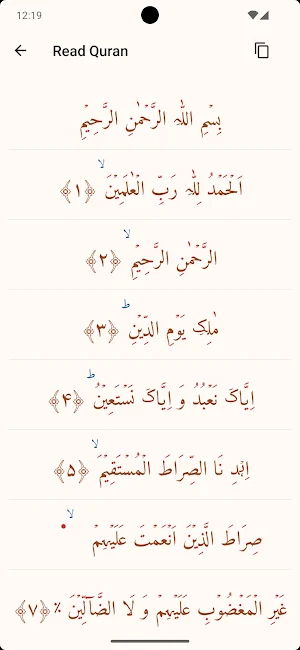 12:19
Read Quran
بِسۡمِ اللّٰہِ الرَّحۡمٰنِ الرَّحِیۡمِ
اَلۡحَمۡدُ لِلّٰہِ رَبِّ الۡعٰلَمِیۡنَ ۙ﴿۱﴾
الرَّحۡمٰنِ الرَّحِیۡمِ ۙ﴿۲﴾
مٰلِکِ یَوۡمِ الدِّیۡنِ ؕ﴿۳﴾
اِیَّاکَ نَعۡبُدُ وَ اِیَّاکَ نَسۡتَعِیۡنُ ؕ﴿۴﴾
اِہۡدِ نَا الصِّرَاطَ الۡمُسۡتَقِیۡمَ ۙ﴿۵﴾
صِرَاطَ الَّذِیۡنَ اَنۡعَمۡتَ عَلَیۡہِمۡ ۙ
غَیۡرِ الۡمَغۡضُوۡبِ عَلَیۡہِمۡ وَ لَا الضَّآلِّیۡنَ ٪﴿۷﴾